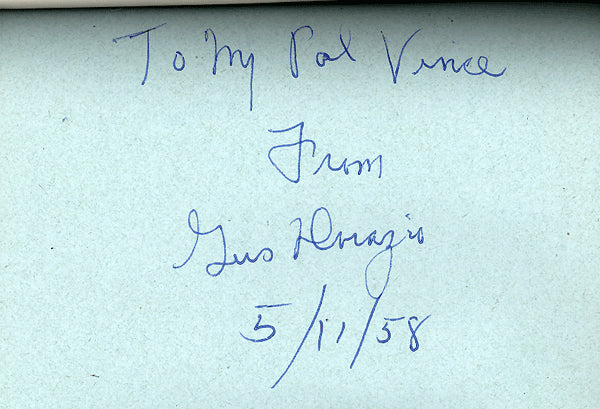 To My Pal Vince
From
Gus Dorazio
5/11/58